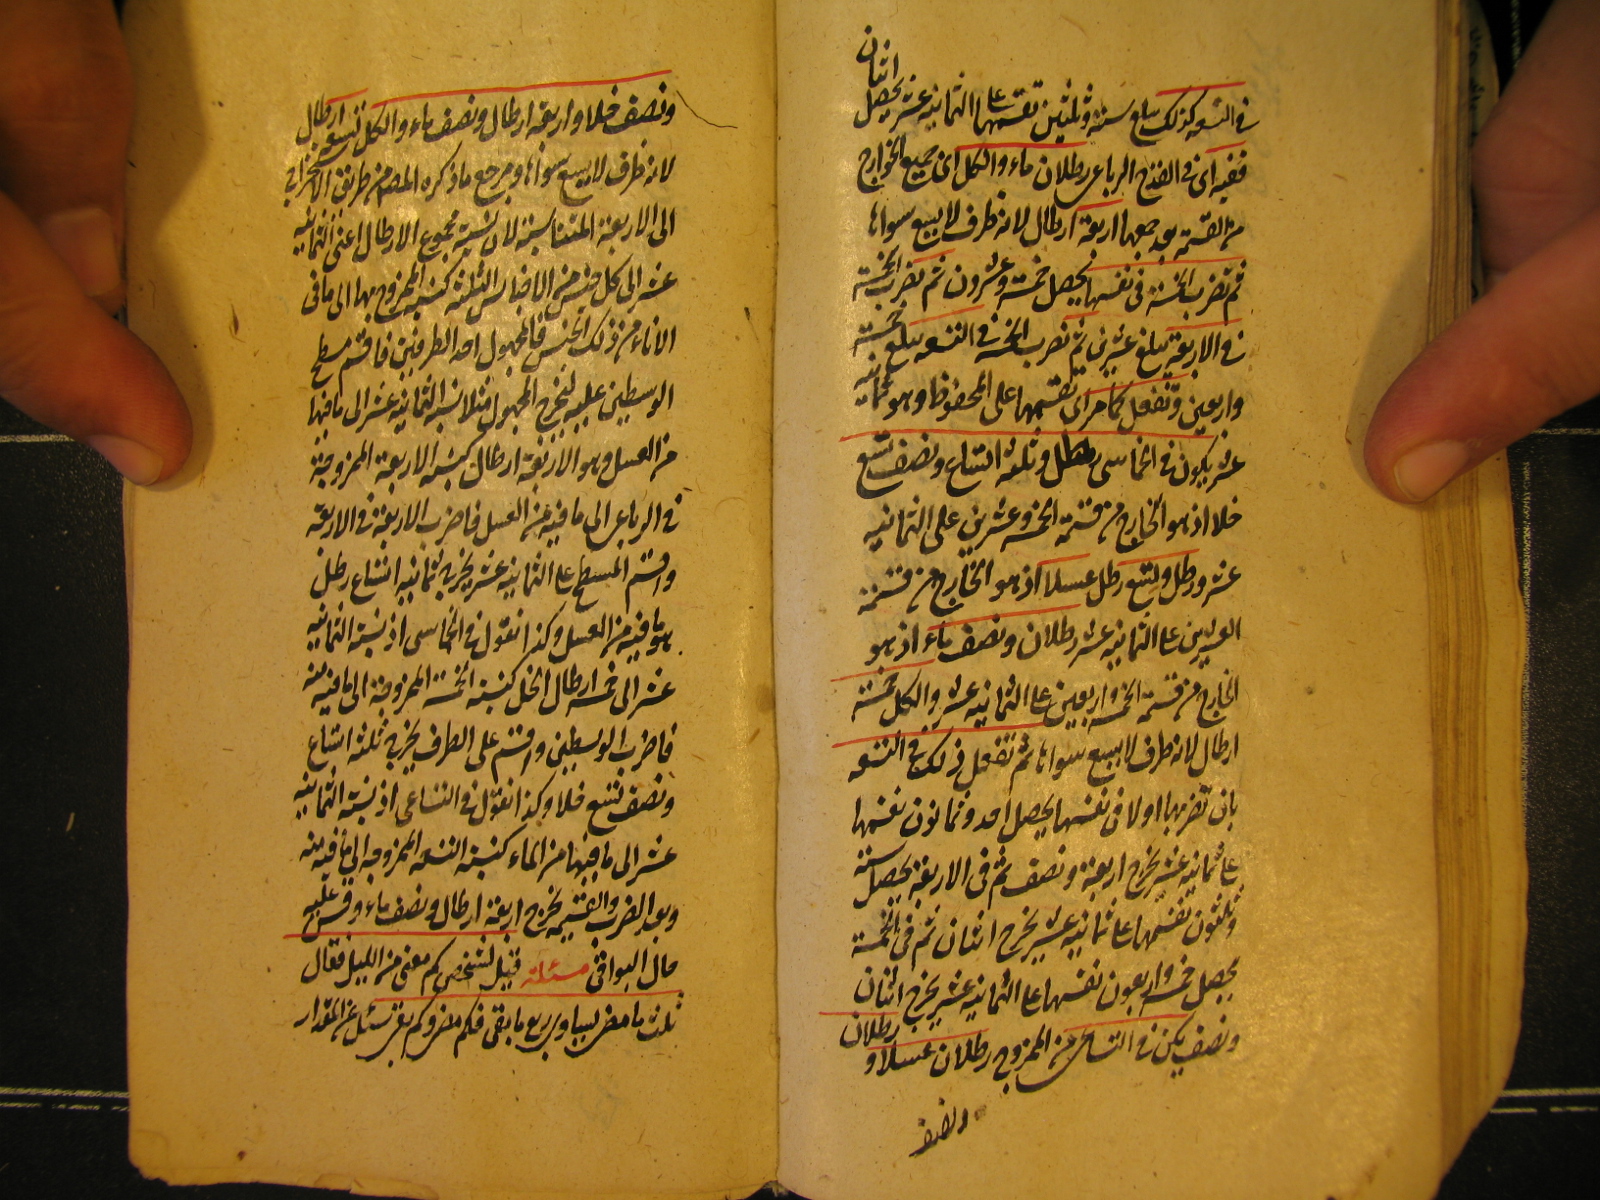 اثنان
في التسعة كذلك يبلغ ستة وثلثين تقسمها على الثمانية عشر يحصل
ففيه اى في القدح الرباعى رطلان ماء والكل اى جميع الخوارج
من القسمة بعد جمعها اربعة ارطال لانه ظرف لا يسع سواها
ثم تضرب الخمسة في نفسها يحصل خمسة وعشرون ثم تضرب الخمسة
في الاربعة يبلغ عشرين ثم تضرب الخمسة في التسعة يبلغ خمسة
واربعين وتفعل كما مر اى تقسمها على المحفوظ وهو ثمانية
عشر يكون في الخماسى رطل وثلثة اتساع ونصف تسع
خلا اذ هو الخارج من قسمة الخمسة وعشرين على الثمانية
عشر ورطل وتسع رطل عسلا اذ هو الخارج من قسمة
العشرين على الثمانية عشر ورطلان ونصف ماء اذ هو
الخارج من قسمة الخمسة واربعين على الثمانية عشر والكل خمسة
ارطال لانه ظرف لا يسع سواها ثم تفعل ذلك في التسعة
بان تضربها اولا في نفسها يحصل احد وثمانون تقسمها
على ثمانية عشر يخرج اربعة ونصف ثم في الاربعة يحصل ستة
وثلثون تقسمها على ثمانية عشر يخرج اثنان ثم في الخمسة
يحصل خمسة واربعون تقسمها على الثمانية عشر يخرج اثنان
ونصف يكن في التساعى من الممزوج رطلان عسلا و رطلان
ونصف
ونصف خلا واربعة ارطال ونصف ماء والكل تسعة ارطال
لانه ظرف لا يسع سواها ومرجع ما ذكره المصم من طريق الاستخراج
الى الاربعة المتناسبة لان نسبة مجموع الارطال اعنى الثمانية
عشر الى كل جنس من الاجناس الثلثة كنسبة الممزوج بها الى ما في
الاناء من ذلك الجنس فالمجهول احد الطرفين فاقسم مسطح
الوسطين عليه ليخرج المجهول مثلا نسبة الثمانية عشر الى ما فيها
من العسل وهو الاربعة ارطال كنسبة الاربعة الممزوجة
في الرباعى الى ما فيه من العسل فاضرب الاربعة في الاربعة
واقسم المسطح على الثمانية عشر يخرج ثمانية اتساع رطل
هو ما فيه من العسل وكذا نقول في الخماسى اذ نسبة الثمانية
عشر الى خمسة ارطال الخل كنسبة الخمسة الممزوجة الى ما فيه منه
فاضرب الوسطين واقسم على الطرف يخرج ثلثة اتساع
ونصف تسع خلا وكذا نقول في التساعى اذ نسبة الثمانية
عشر الى ما فيها من الماء كنسبة التسعة الممزوجة الى ما فيه منه
وبعد الضرب والقسمة يخرج اربعة ارطال ونصف ماء وقس عليه
حال البواقى مسئلة قيل لشخص كم مضى من الليل فقال
ثلث ما مضى يساوى ربع ما بقى فكم مضى وكم بقى سئل عن المقدار